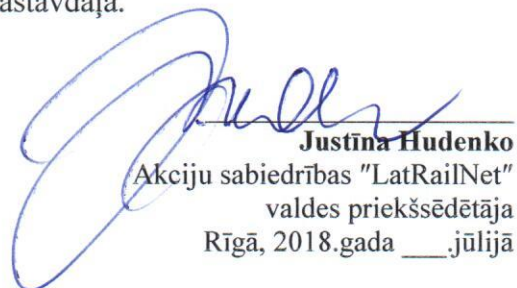 astāvdaļa.
Justīna Hudenko
Akciju sabiedrības "LatRailNet"
valdes priekšsēdētāja
Rīgā, 2018.gada ___.jūlijā